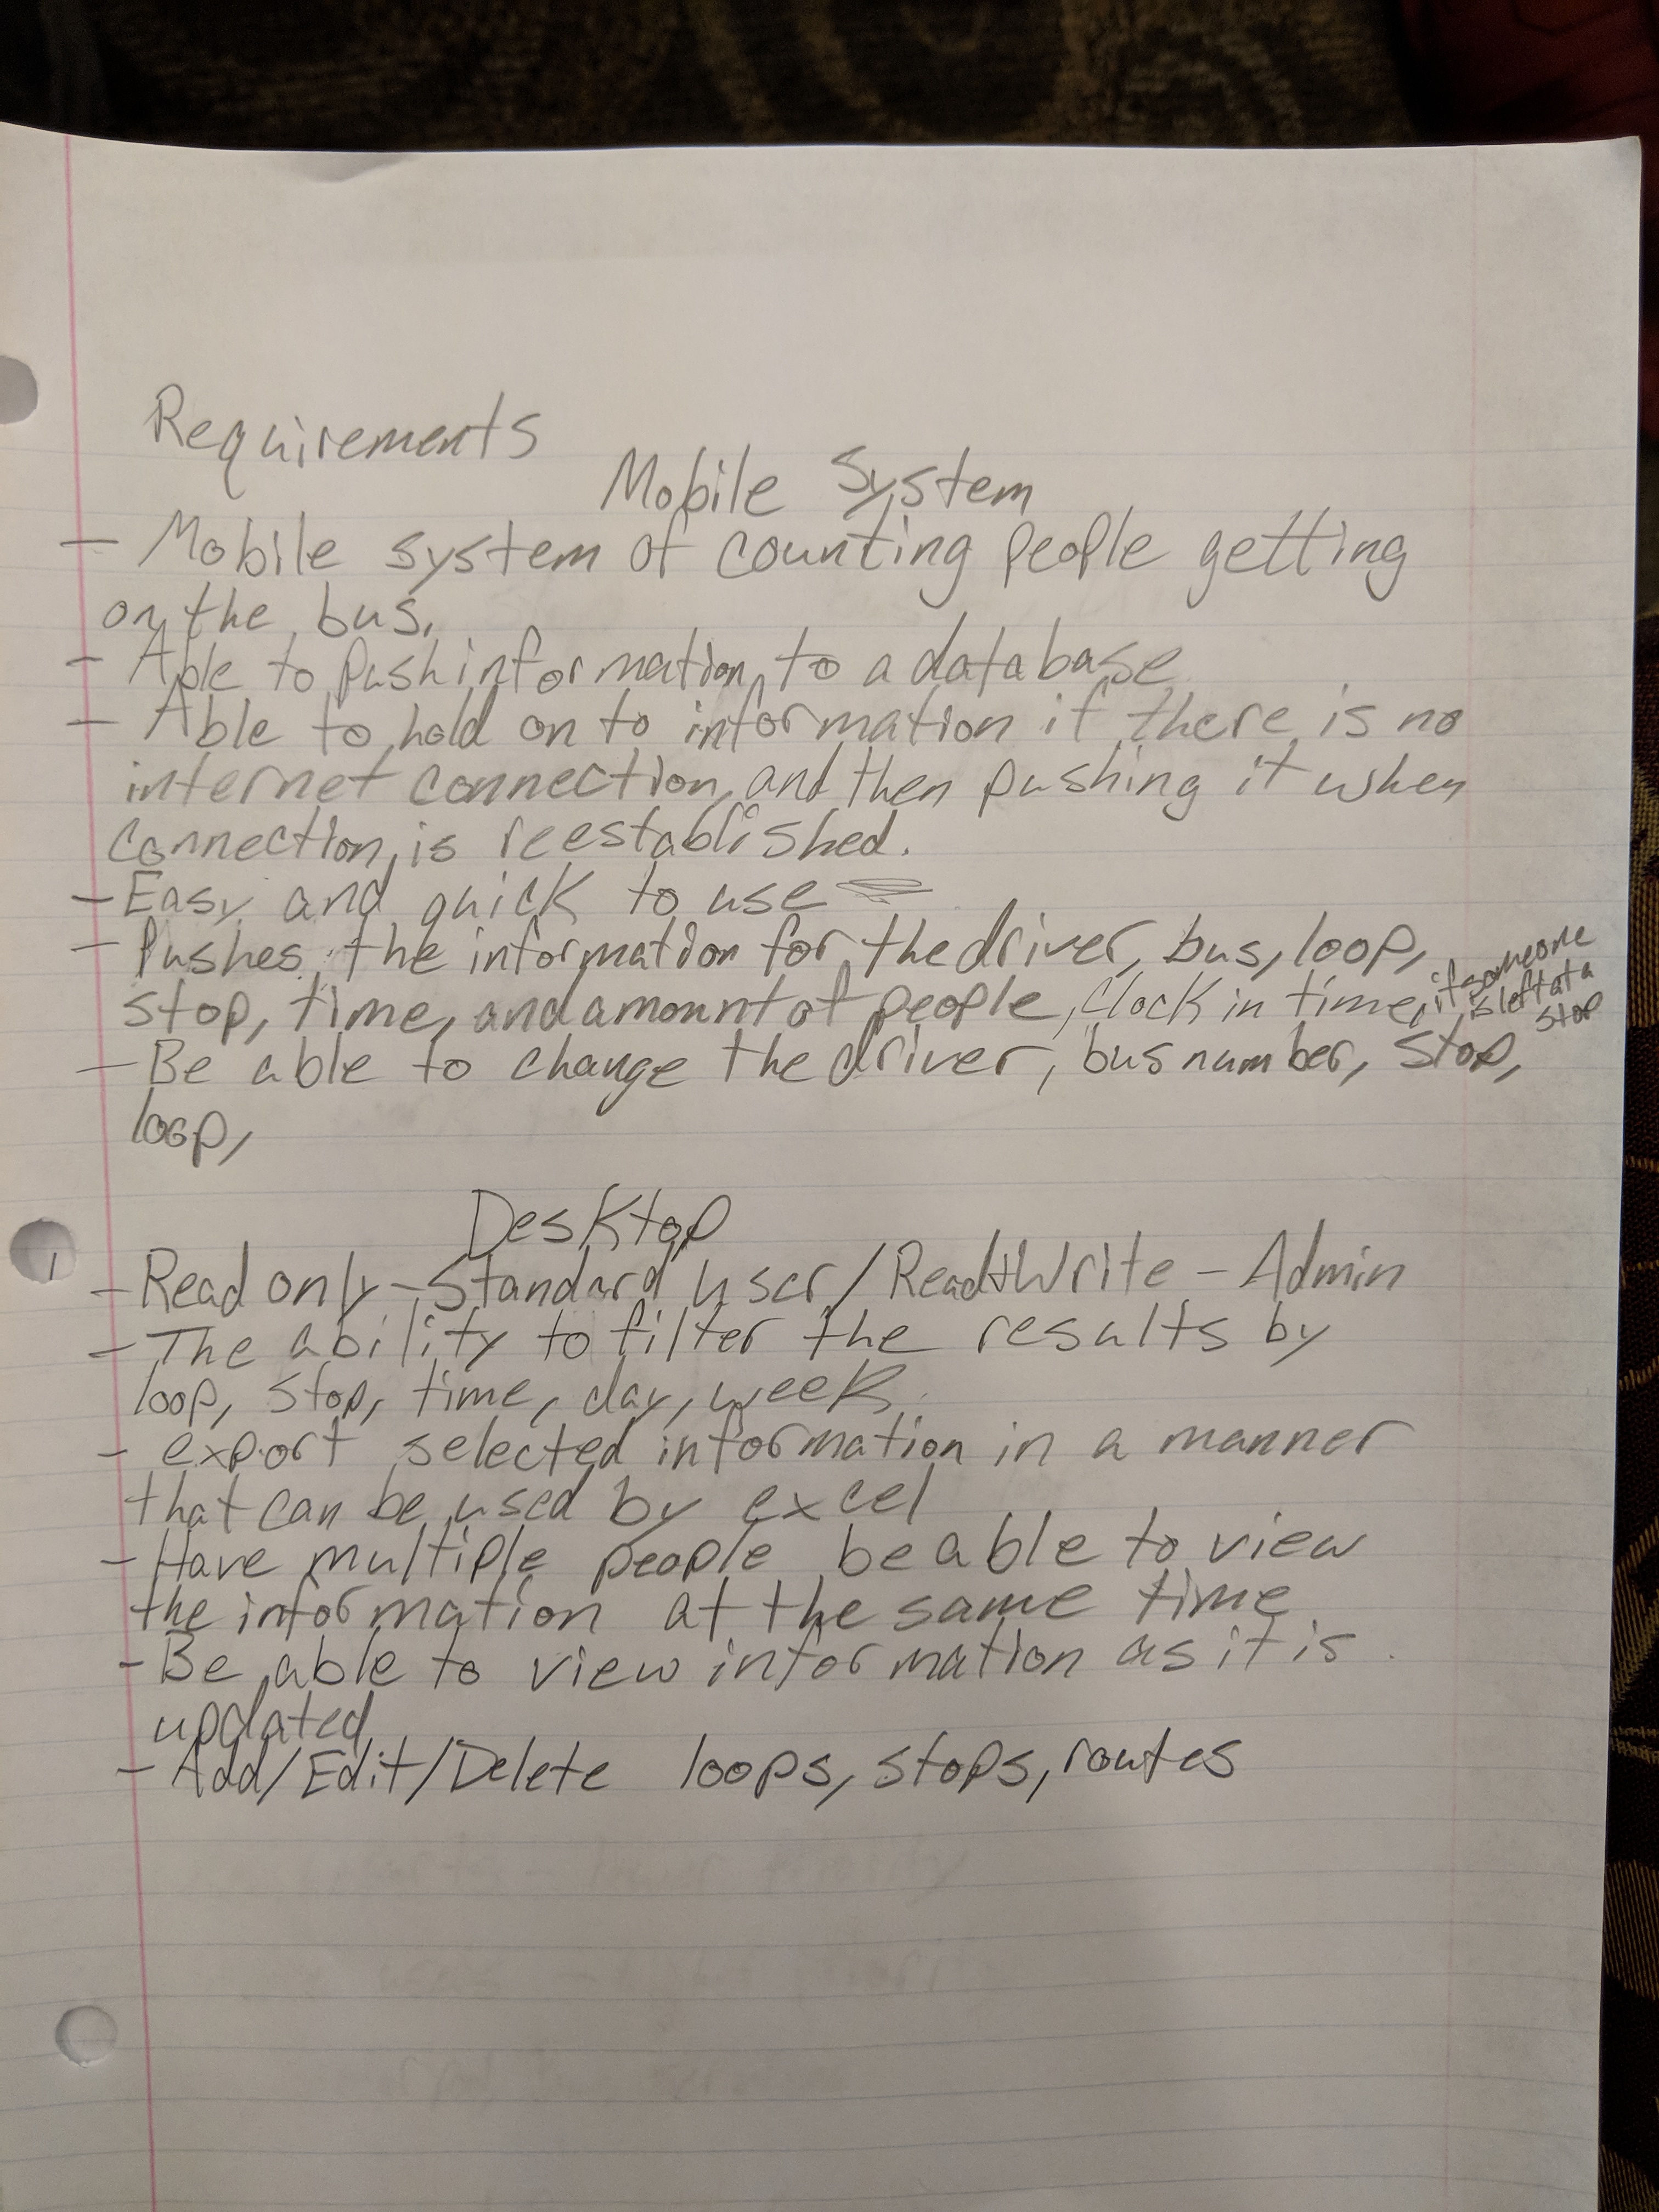 Requirements
Mobile System
- Mobile system of counting people getting
on the bus.
- Able to push information to a database
- Able to hold on to information if there is no
internet connection and then pushing it when
connection is reestablished.
- Easy and quick to use
- Pushes the information for the driver, bus, loop,
stop, time, and amount of people, Clock in time, if someone
is left at a
stop
- Be able to change the driver, bus number, stop,
loop,
Desktop
- Read only - Standard user / Read+Write - Admin
- The ability to filter the results by
loop, stop, time, day, week
- export selected information in a manner
that can be used by excel
- Have multiple people be able to view
the information at the same time
- Be able to view information as it is
updated
- Add/Edit/Delete loops, stops, routes